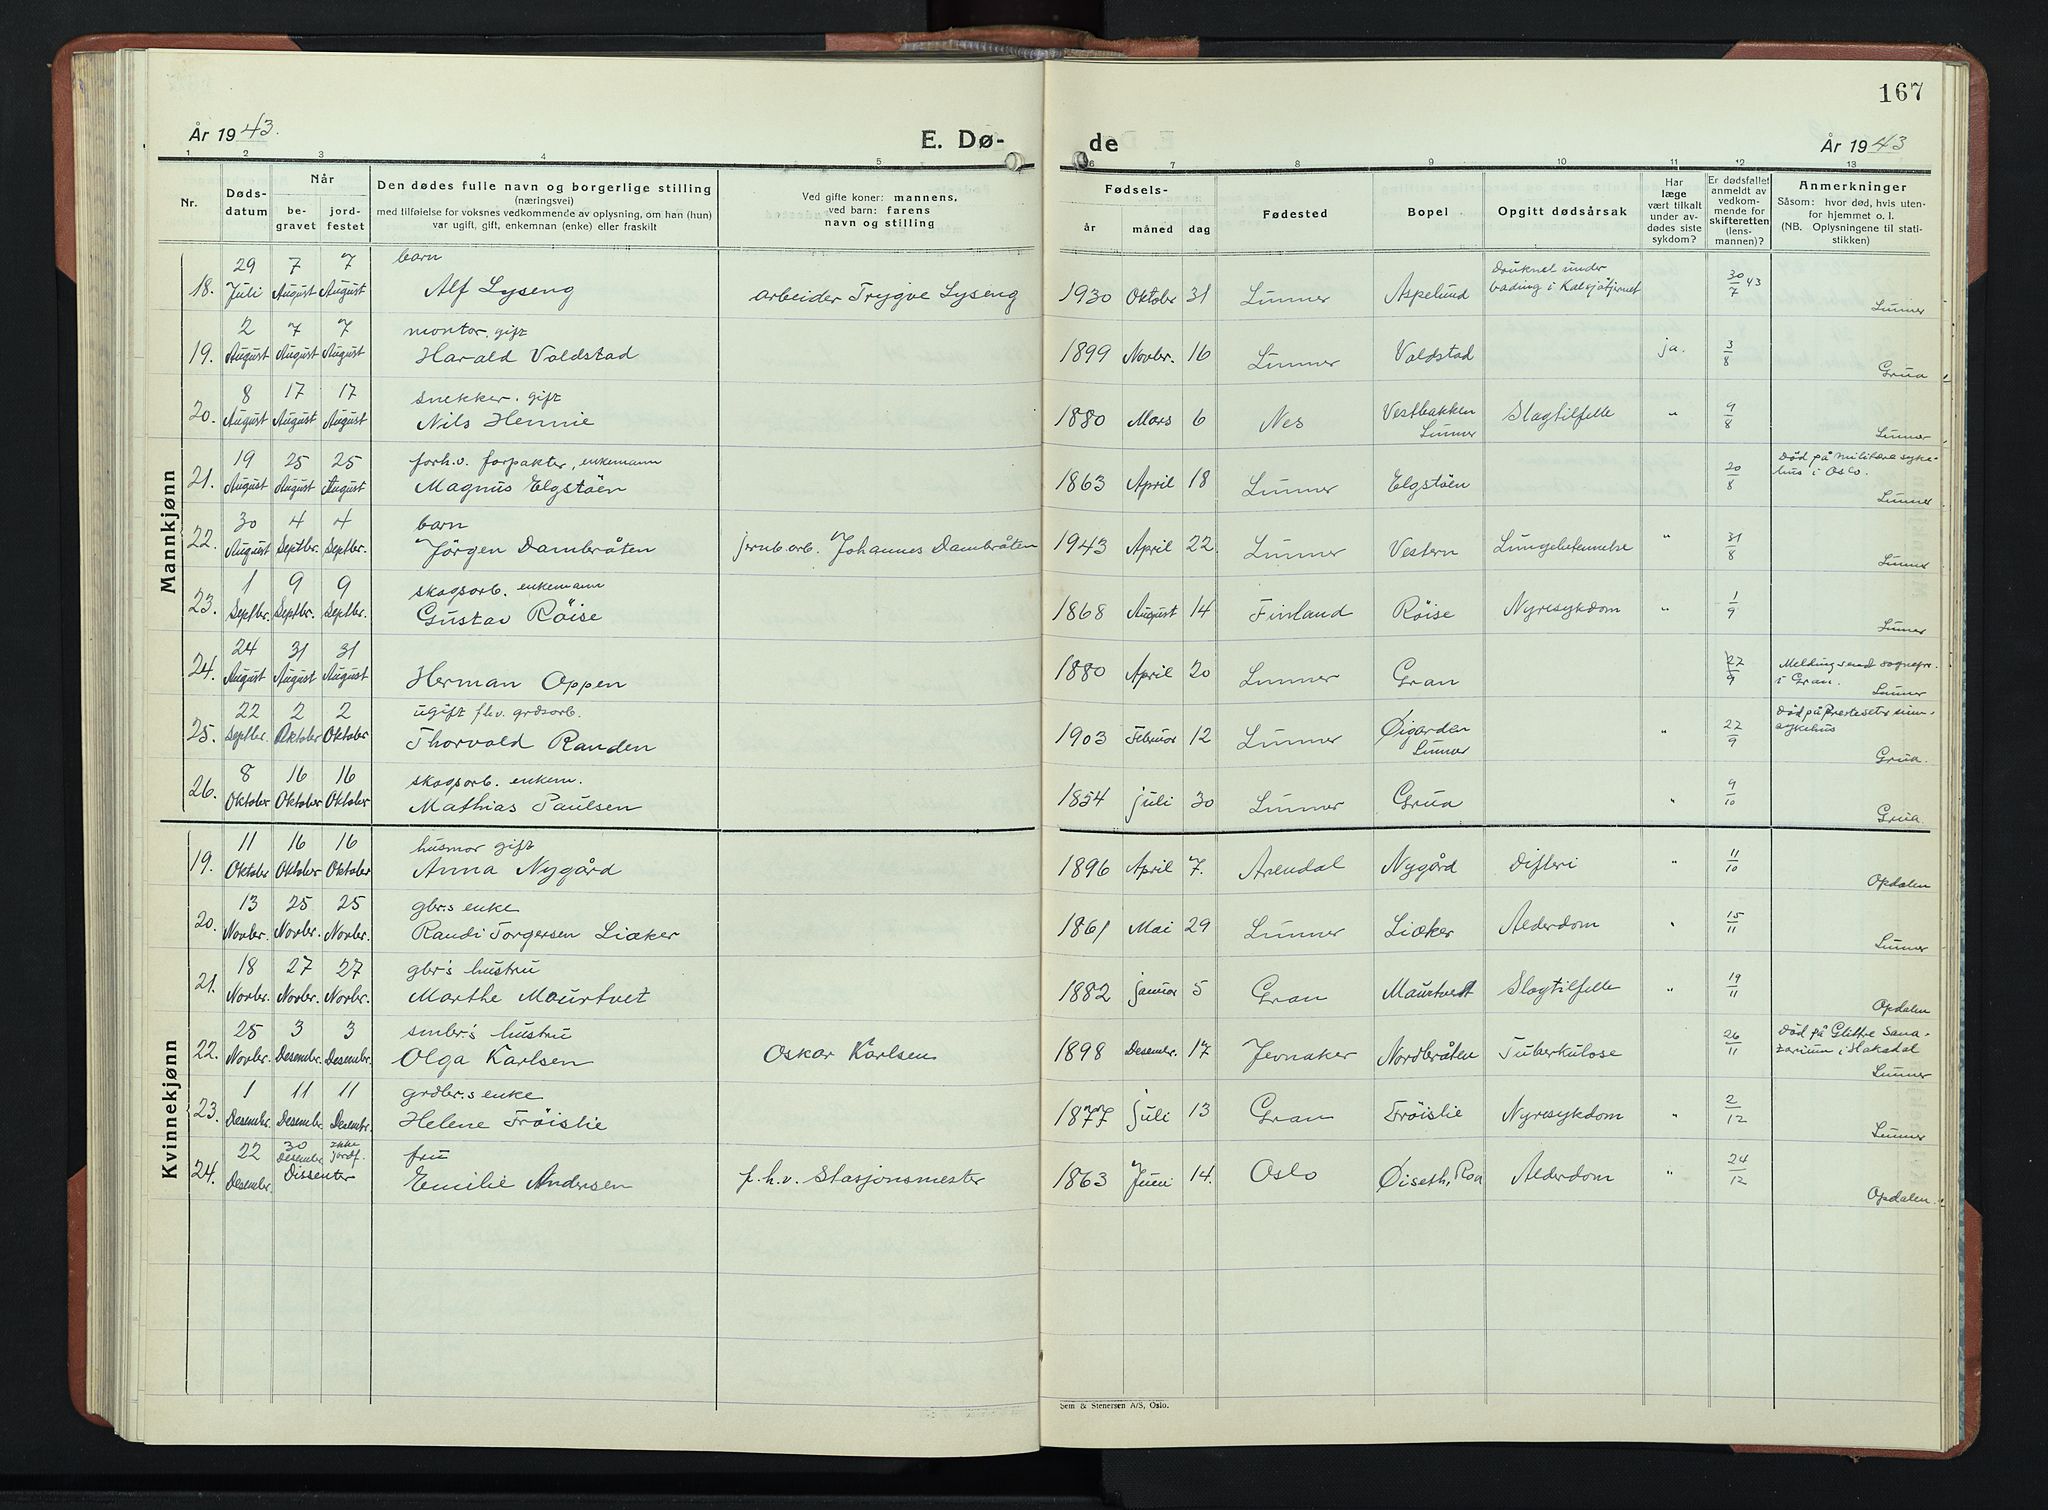 167
År 1943.
E. Dø-
de
År 1943
1 2 3 4 5 6 7 8 9 10 11 12 13
Nr.
Døds-
datum
Når
be-
gravet
jord-
festet
Den dødes fulle navn og borgerlige stilling
(næringsvei)
med tilføielse for voksnes vedkommende av oplysning, om han (hun)
var ugift, gift, enkemnan (enke) eller fraskilt
Ved gifte koner: mannens,
ved barn: farens
navn og stilling
Fødsels-
år måned dag
Fødested
Bopel
Opgitt dødsårsak
Har
læge
vært tilkalt
under av-
dødes siste
sykdom?
Er dødsfallet
anmeldt av
vedkom-
mende for
skifteretten
(lens-
mannen)?
Anmerkninger
Såsom: hvor død, hvis uten-
for hjemmet o. l.
(NB. Oplysningene til stati-
stikken)
Mannkjønn
29 7 7 barn Druknet under 30/7 43
18. Juli August August Alf Lyseng arbeider Trygve Lyseng 1930 Oktober 31 Lunner Aspelund bading i Kalsjøtjernet Lunner
2 7 7 montør, gift
19. August August August Harald Voldstad 1899 Novbr. 16 Lunner Voldstad ja. 3/8 Grua
8 17 17 snekker, gift
20. August August August Nils Hennie 1880 Mars 6 Nes Vestbakken Slagtilfelle " 9/8
Lunner Lunner
19 25 25 forh.v. forpakter, enkemann Død på militære syke-
21. August August August Magnus Elgstøen 1863 April 18 Lunner Elgstøen 20/8 hus i Oslo.
Lunner
30 4 4 barn
22. August Septbr. Septbr. Jørgen Dambråten jernb.arb. Johannes Dambråten 1943 April 22. Lunner Vestern Lungebetennelse " 31/8 Lunner
1 9 9 skogsarb. enkemann
23. Septbr. Septbr. Septbr. Gustav Røise 1868 August 14 Finland Røise Nyresykdom " 1/9 Lunner
24 31 31 Melding sendt sognepr.
24. August August August Herman Oppen 1880 April 20 Lunner Gran 27/9 i Gran. Lunner
22 2 2 ugift fhv. grdsarb. Død på
25. Septbr. Oktober Oktober Thorvald Randen 1903 Februar 12 Lunner Øigarden " 22/9 sykehus
Lunner Grua.
8 16 16 skogsarb. enkem.
26. Oktober Oktober Oktober Mathias Paulsen 1854 juli 30 Lunner Grua " 9/10 Grua.
Kvinnekjønn
11 16 16 husmor gift
19. Oktober Oktober Oktober Anna Nygård 1896 April 7. Arendal Nygård Difteri " 11/10 Opdalen
13 25 25 gbr.s enke
20. Novbr. Novbr. Novbr. Randi Torgersen Liæker 1861 Mai 29 Lunner Liæker Alderdom " 15/11 Lunner
18 27 27 gbr's hustru
21. Novbr. Novbr. Novbr. Marthe Maurtvet 1882 januar 5 Gran Maurtvedt Slagtilfelle " 19/11 Opdalen
25 3 3 smbr's hustru Død på Glittre Sana-
22. Novbr. Desembr. Desembr. Olga Karlsen Oskar Karlsen 1898 Desembr. 17 Jevnaker Nordbråten Tuberkulose 26/11 torium i Hakadal
Lunner
1 11 11 grdbr.s enke
23. Desembr. Desembr. Desembr. Helene Frøislie 1877 juli 13 Gran Frøislie Nyresykdom " 2/12 Lunner
22 30 Desembr. ikke jordf. fru
24. Desembr. Dissenter Emilie Andersen f.h.v. Stasjonsmester 1863 Juni 14. Oslo Øiseth, Roa Alderdom " 24/12 Opdalen.
Sem & Stenersen A/S, Oslo.